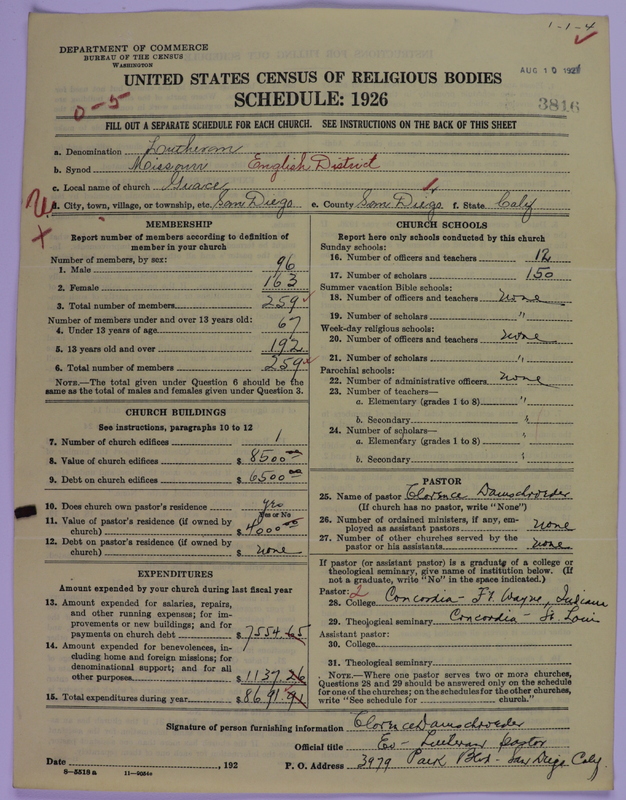 1-1-4
DEPARTMENT OF COMMERCE
BUREAU OF THE CENSUS
WASHINGTON
AUG 10 192
UNITED STATES CENSUS OF RELIGIOUS BODIES
0-5
SCHEDULE: 1926
3816
FILL OUT A SEPARATE SCHEDULE FOR EACH CHURCH. SEE INSTRUCTIONS ON THE BACK OF THIS SHEET
a. Denomination Lutheran
b. Synod Missouri English District
c. Local name of church Grace
d. City, town, village, or township, etc. San Diego e. County San Diego f. State Caly
MEMBERSHIP
Report number of members according to definition of
member in your church
Number of members, by sex:
1. Male 96
2. Female 163
3. Total number of members 259
Number of members under and over 13 years old:
4. Under 13 years of age 67
5. 13 years old and over 192
6. Total number of members 259
NOTE.—The total given under Question 6 should be the
same as the total of males and females given under Question 3.
CHURCH BUILDINGS
See instructions, paragraphs 10 to 12
7. Number of church edifices 1
8. Value of church edifices $ 8500.00
9. Debt on church edifices $ 6500.00
10. Does church own pastor's residence yes
Yes or No
11. Value of pastor's residence (if owned by
church) $ 4000.00
12. Debt on pastor's residence (if owned by
church) $ none
EXPENDITURES
Amount expended by your church during last fiscal year
13. Amount expended for salaries, repairs,
and other running expenses; for im-
provements or new buildings; and for
payments on church debt $ 7554.65
14. Amount expended for benevolences, in-
cluding home and foreign missions; for
denominational support; and for all
other purposes $ 1137.26
15. Total expenditures during year $ 8691.91
CHURCH SCHOOLS
Report here only schools conducted by this church
Sunday schools:
16. Number of officers and teachers 12
17. Number of scholars 150
Summer vacation Bible schools:
18. Number of officers and teachers none
19. Number of scholars "
Week-day religious schools:
20. Number of officers and teachers none
21. Number of scholars "
Parochial schools:
22. Number of administrative officers none
23. Number of teachers—
a. Elementary (grades 1 to 8) "
b. Secondary "
24. Number of scholars—
a. Elementary (grades 1 to 8) "
b. Secondary "
PASTOR
25. Name of pastor Clorence Damschroeder
(If church has no pastor, write "None")
26. Number of ordained ministers, if any, em-
ployed as assistant pastors none
27. Number of other churches served by the
pastor or his assistants none
If pastor (or assistant pastor) is a graduate of a college or
theological seminary, give name of institution below. (If
not a graduate, write "No" in the space indicated.)
Pastor: 2
28. College Concordia - Ft. Wayne, Indiana
29. Theological seminary Concordia - St. Louis
Assistant pastor:
30. College
31. Theological seminary
NOTE.—Where one pastor serves two or more churches,
Questions 28 and 29 should be answered only on the schedule
for one of the churches; on the schedules for the other churches,
write "See schedule for church."
Signature of person furnishing information Clorence Damschroeder
Official title Ev- Lutheran Pastor
Date , 192 P. O. Address 3979 Park Blvd - San Diego Caly
8-5518 a 11-9056c